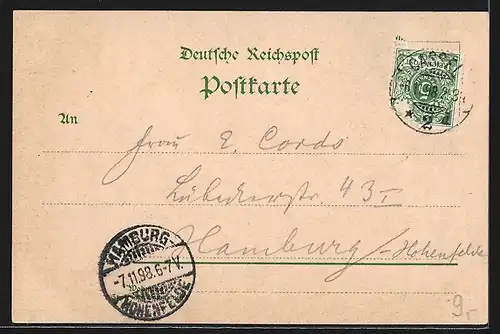 Deutsche Reichspost
Postkarte
CASSEL
* 2
5
An
Frau E. Cords
Lübeckerstr. 43 I
Hamburg-Hohenfelde
HAMBURG-
-7.11.98.6-7V.
HOHENFELDE
9,-